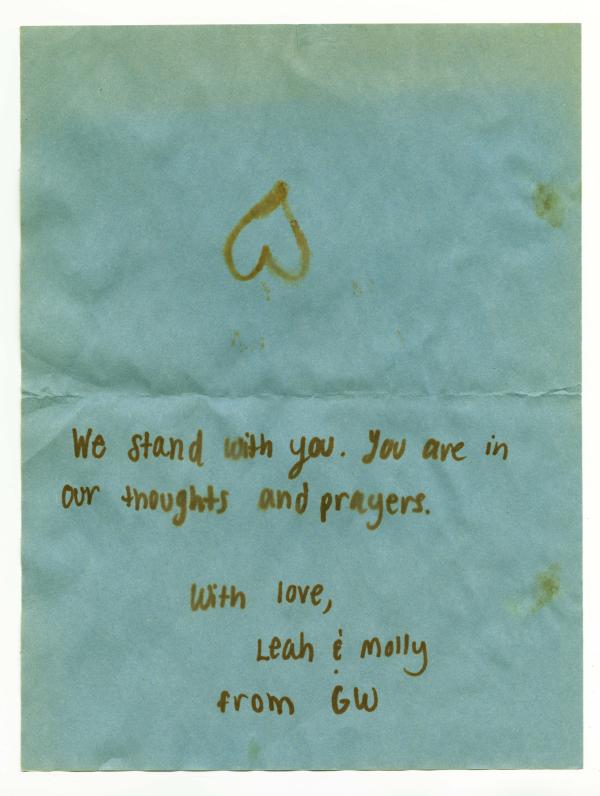 We stand with you. You are in
our thoughts and prayers.
With love,
Leah & Molly
from GW